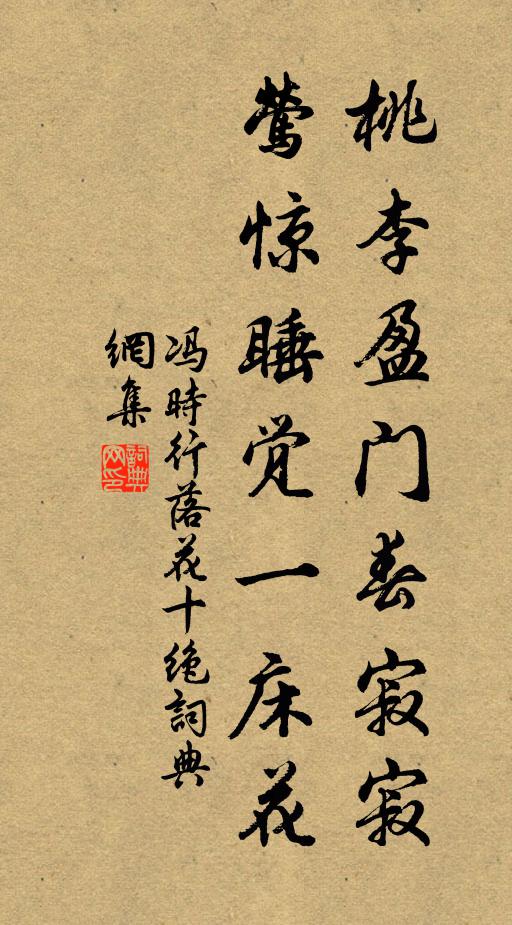 桃李盈门春寂寂
莺惊睡觉一床花
冯時行落花十绝詞典
網集
詞典网印